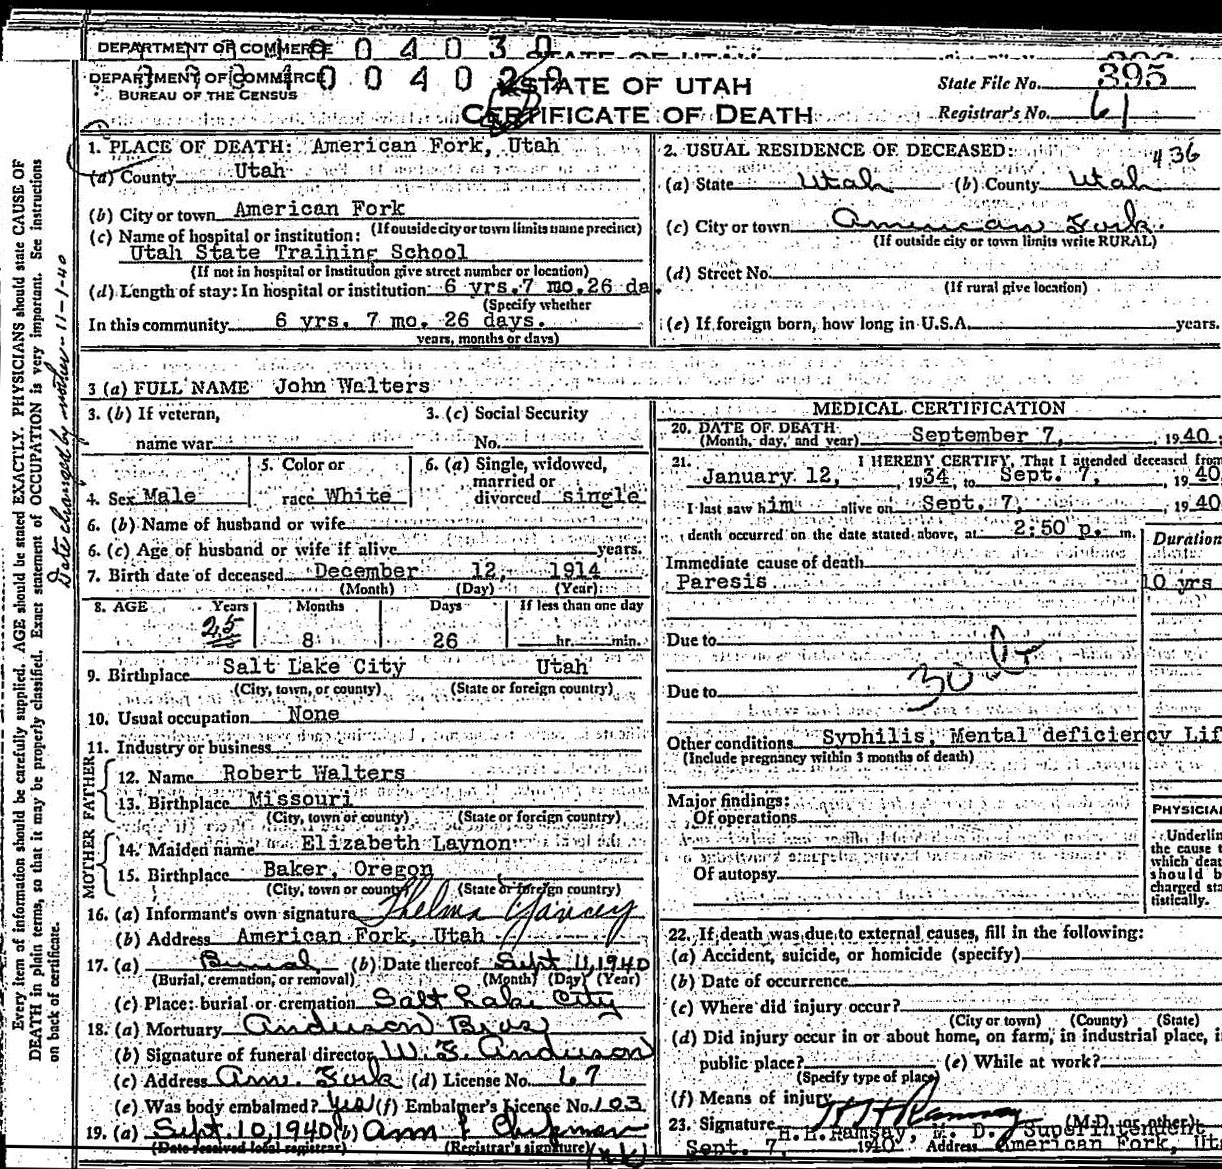 DEPARTMENT OF COMMERCE
STATE OF UTAH
DEPARTMENT OF COMMERCE
BUREAU OF THE CENSUS
STATE OF UTAH
CERTIFICATE OF DEATH
State File No. 395
Registrar's No. 61
1. PLACE OF DEATH: American Fork, Utah
(a) County Utah
(b) City or town American Fork
(If outside city or town limits name precinct)
(c) Name of hospital or institution:
Utah State Training School
(If not in hospital or Institution give street number or location)
(d) Length of stay: In hospital or institution 6 yrs. 7 mo. 26 da.
(Specify whether
In this community 6 yrs. 7 mo. 26 days.
years, months or days)
2. USUAL RESIDENCE OF DECEASED: 436
(a) State Utah (b) County Utah
(c) City or town American Fork.
(If outside city or town limits write RURAL)
(d) Street No.
(If rural give location)
(e) If foreign born, how long in U.S.A. years.
3 (a) FULL NAME John Walters
3. (b) If veteran,
name war
3. (c) Social Security
No.
4. Sex Male
5. Color or
race White
6. (a) Single, widowed,
married or
divorced single
6. (b) Name of husband or wife
6. (c) Age of husband or wife if alive years.
7. Birth date of deceased December 12, 1914
(Month) (Day) (Year)
8. AGE Years Months Days If less than one day
25 8 26 hr. min.
9. Birthplace Salt Lake City Utah
(City, town, or county) (State or foreign country)
10. Usual occupation None
11. Industry or business
FATHER
12. Name Robert Walters
13. Birthplace Missouri
(City, town or county) (State or foreign country)
MOTHER
14. Maiden name Elizabeth Laynon
15. Birthplace Baker, Oregon
(City, town or county) (State or foreign country)
16. (a) Informant's own signature Thelma Yancey
(b) Address American Fork, Utah
17. (a) Burial (b) Date thereof Sept 11, 1940
(Burial, cremation, or removal) (Month) (Day) (Year)
(c) Place: burial or cremation Salt Lake City
18. (a) Mortuary Anderson Bros
(b) Signature of funeral director W. F. Anderson
(c) Address Am. Fork (d) License No. 67
(e) Was body embalmed? Yes (f) Embalmer's License No. 103
19. (a) Sept. 10, 1940 (b) Ann F Chipman
(Date received local registrar) (Registrar's signature)
MEDICAL CERTIFICATION
20. DATE OF DEATH
(Month, day, and year) September 7, 1940
21. I HEREBY CERTIFY, That I attended deceased from
January 12, 1934, to Sept. 7, 1940
I last saw him alive on Sept. 7, 1940
death occurred on the date stated above, at 2:50 p. m.
Duration
Immediate cause of death
Paresis 10 yrs
Due to
30 
Due to
Other conditions Syphilis, Mental deficiency Lif
(Include pregnancy within 3 months of death)
Major findings:
Of operations
Of autopsy
PHYSICIAN
Underlin
the cause t
which deat
should b
charged sta
tistically.
22. If death was due to external causes, fill in the following:
(a) Accident, suicide, or homicide (specify)
(b) Date of occurrence
(c) Where did injury occur?
(City or town) (County) (State)
(d) Did injury occur in or about home, on farm, in industrial place, i
public place? (e) While at work?
(Specify type of place)
(f) Means of injury
23. Signature H H Ramsay (M.D. or other)
H. H. Ramsay, M. D. Superintendent
Sept. 7, 1940 Address American Fork, Uta
Every item of information should be carefully supplied. AGE should be stated EXACTLY. PHYSICIANS should state CAUSE OF
DEATH in plain terms, so that it may be properly classified. Exact statement of OCCUPATION is very important. See instructions
on back of certificate.
Date changed by mother - 11-1-40